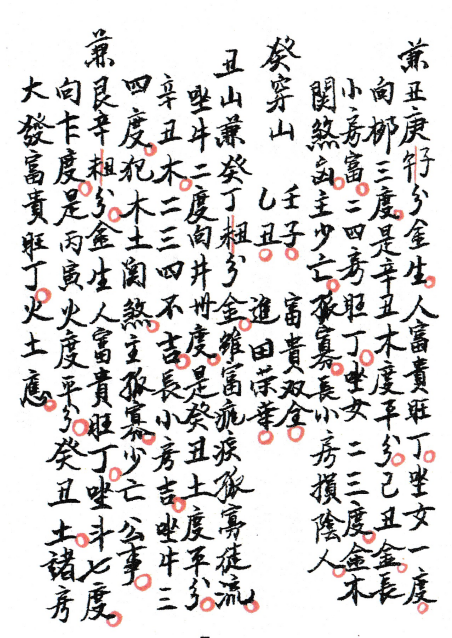 兼丑庚子午分金生人富貴旺丁坐女一度
向柳三度是辛丑木度平分己丑金長
小房富二四房旺丁坐女二三度金木
関煞凶主少亡孤寡長小房損陰人
癸穿山 壬子 富貴双全
乙丑 進田荣華
丑山兼癸丁丑未分金雖富疯疾孤寡徒流
坐牛二度向井卅度是癸丑土度平分
辛丑木二三四不吉長小房吉坐牛三
四度犯木土関煞主孤寡少亡公事
兼艮辛丑未分金生人富貴旺丁坐斗七度
向度是丙寅火度平分癸丑土諸房
大發富貴旺丁火土應